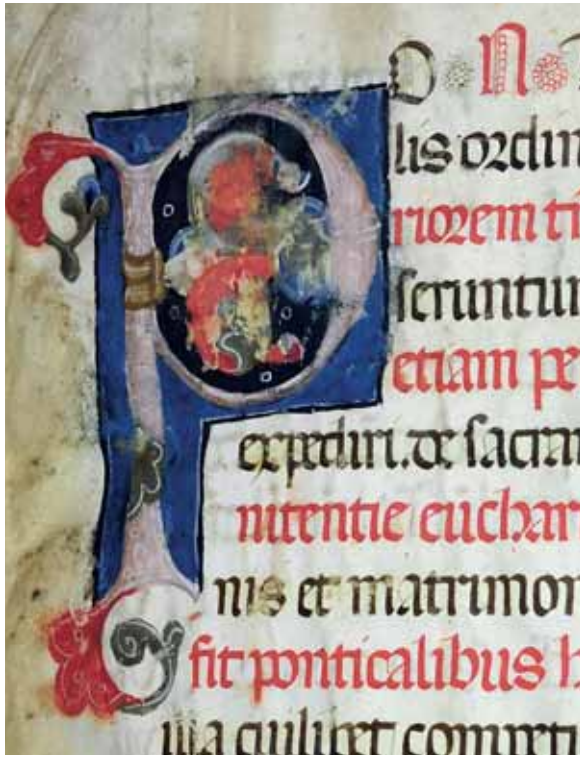 P
D N
lis ordin
riorem ti
seruntur
etiam pe
expediri. de sacra
nitentie euchar
nis et matrimon
fit pontificalibus h
illa cuilibet competi